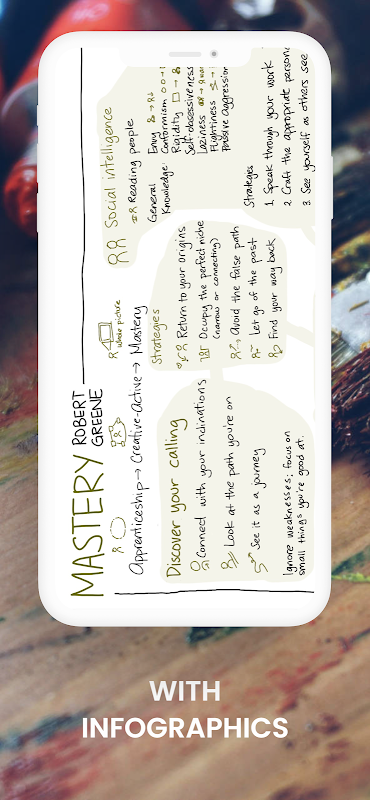 MASTERY
ROBERT
GREENE
whole picture
Apprenticeship → Creative-Active → Mastery
Discover your calling
Connect with your inclinations
Look at the path you're on
See it as a journey
Ignore weaknesses; focus on
small things you're good at.
Strategies
Return to your origins
Occupy the perfect niche
(narrow or connecting)
Avoid the false path
Let go of the past
Find your way back
Social intelligence
Reading people
General
Knowledge:
Envy
Conformism
Rigidity
Self-obsessiveness
Laziness
Flightiness
Passive Aggression
Strategies
1. Speak through your work
2. Craft the appropriate
3. See yourself as others see
WITH
INFOGRAPHICS